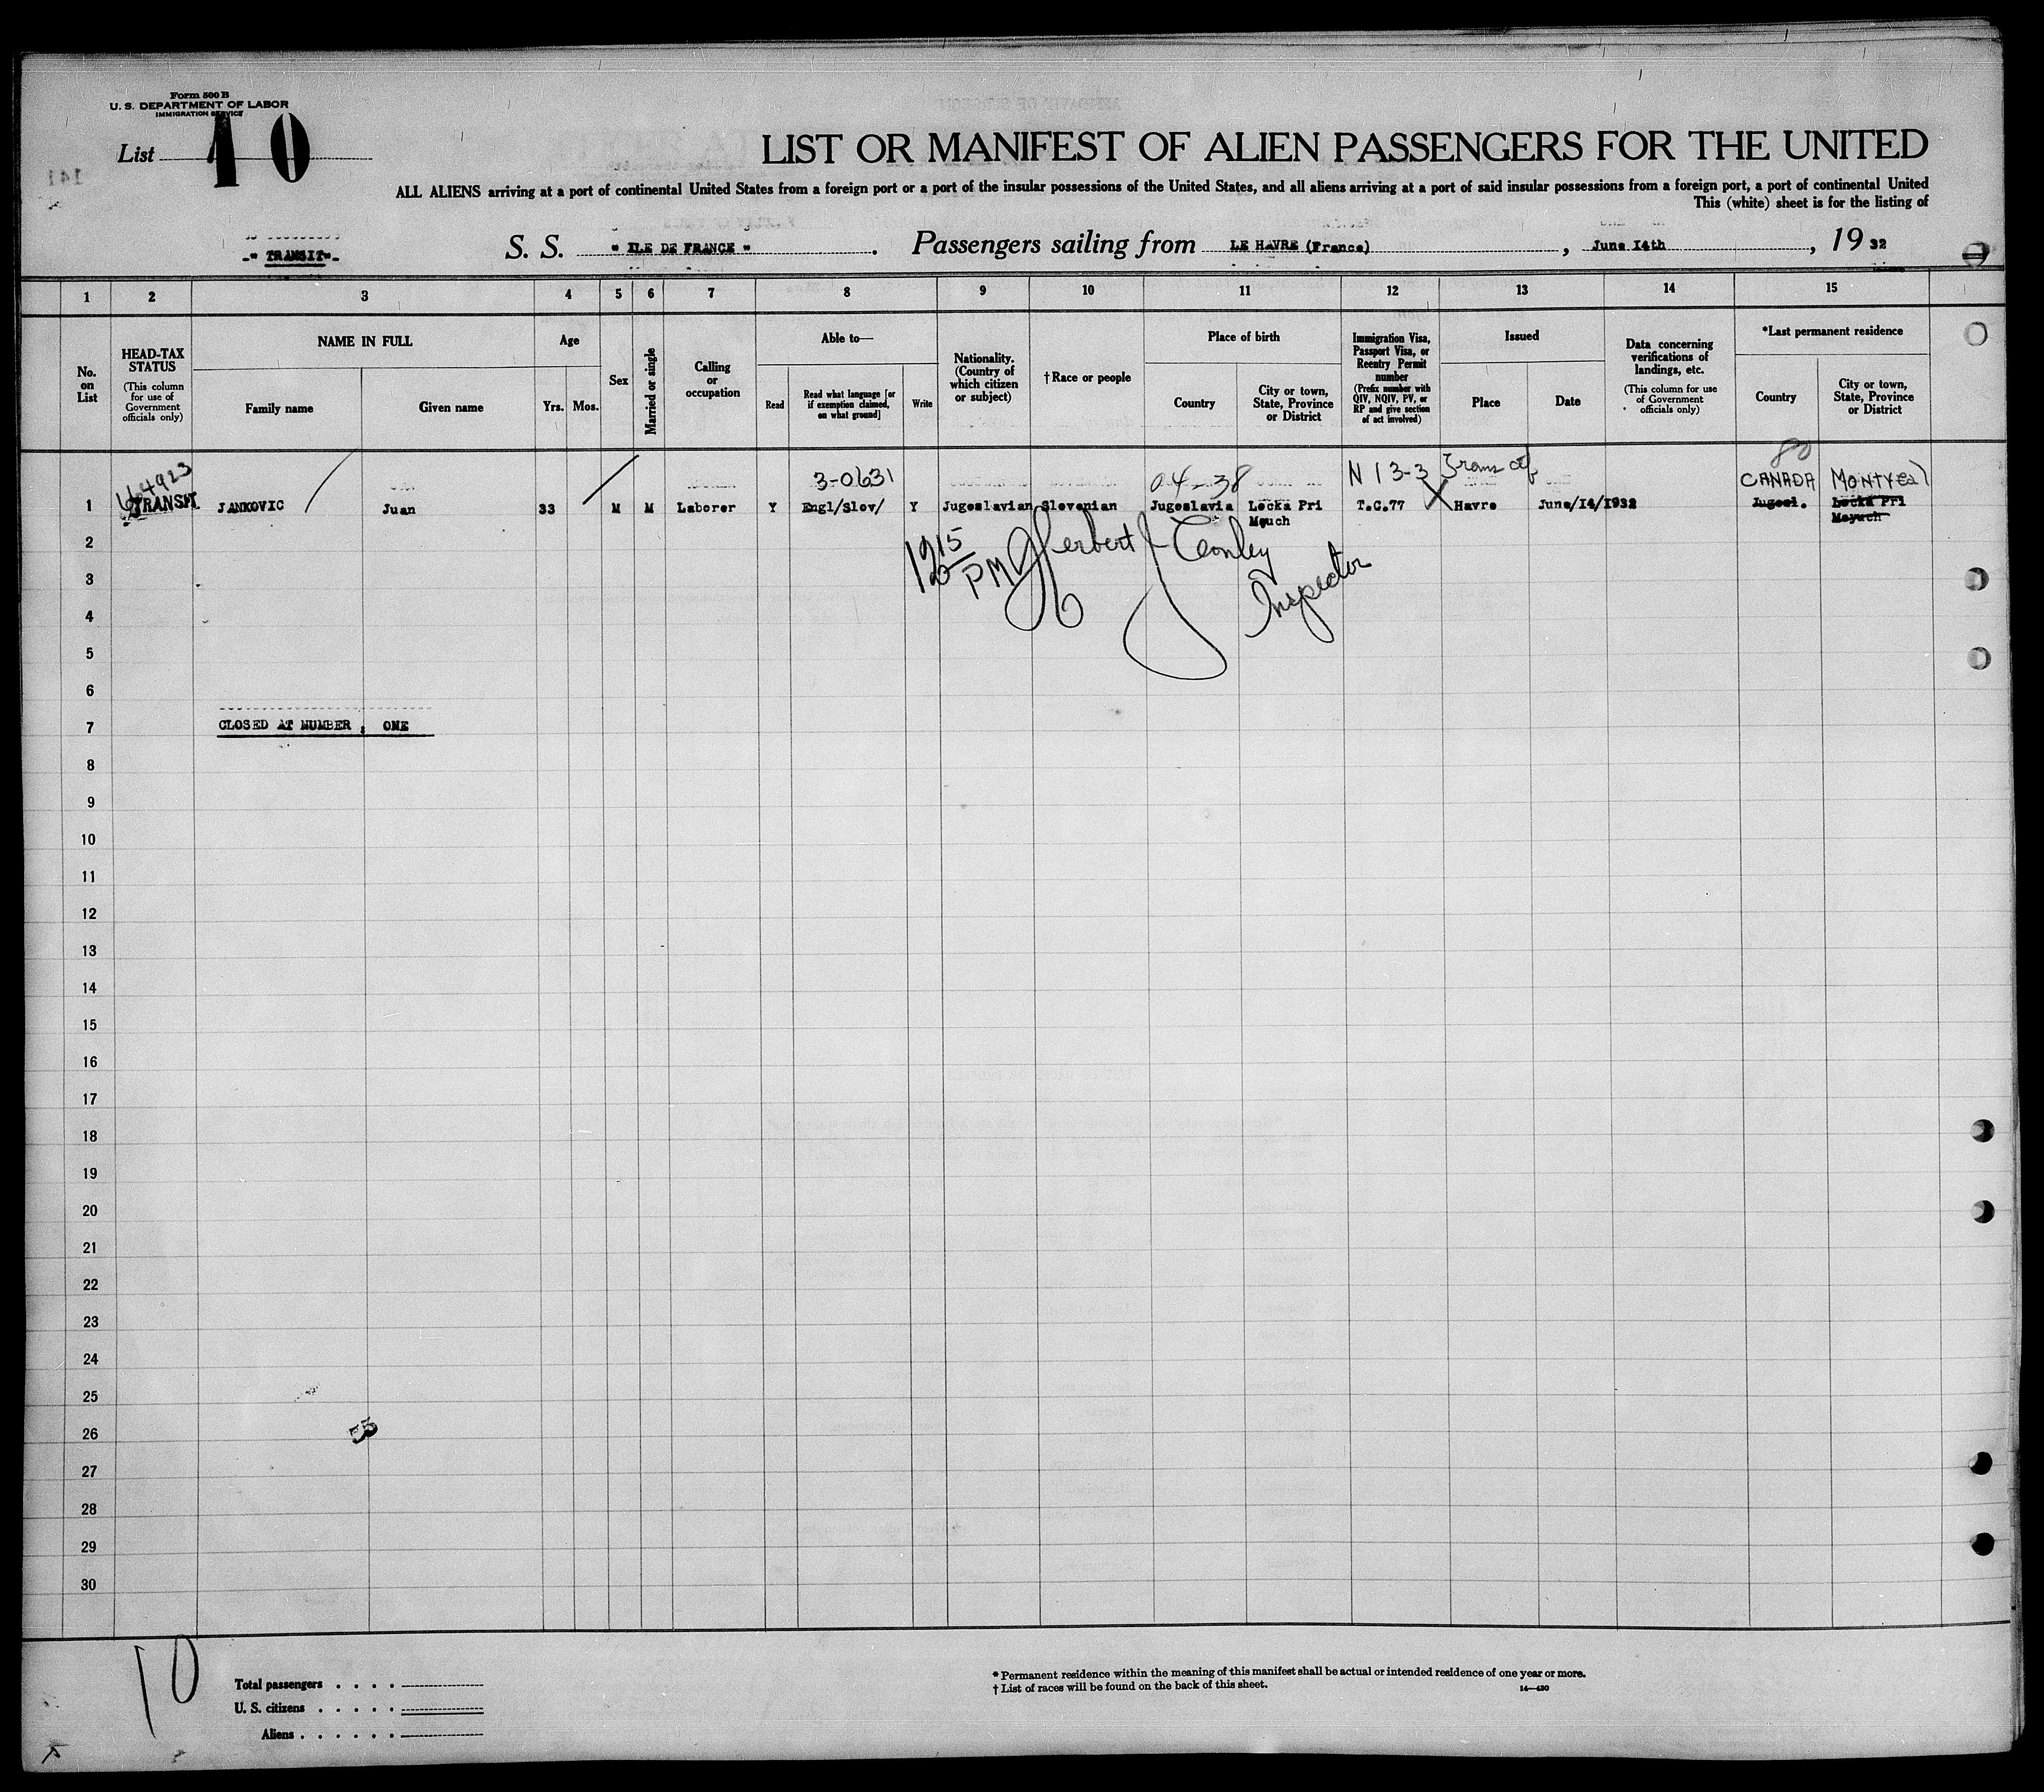 Form 500 B
U. S. DEPARTMENT OF LABOR
IMMIGRATION SERVICE
List 10
LIST OR MANIFEST OF ALIEN PASSENGERS FOR THE UNITED
ALL ALIENS arriving at a port of continental United States from a foreign port or a port of the insular possessions of the United States, and all aliens arriving at a port of said insular possessions from a foreign port, a port of continental United
This (white) sheet is for the listing of
-" TRANSIT"- S. S. " ILE DE FRANCE " . Passengers sailing from LE HAVRE (France) , June 14th , 19 32
1 2 3 4 5 6 7 8 9 10 11 12 13 14 15
No. on List
HEAD-TAX STATUS
(This column for use of Government officials only)
NAME IN FULL
Family name Given name
Age
Yrs. Mos.
Sex
Married or single
Calling or occupation
Able to—
Read
Read what language [or if exemption claimed, on what ground]
Write
Nationality. (Country of which citizen or subject)
† Race or people
Place of birth
Country
City or town, State, Province or District
Immigration Visa, Passport Visa, or Reentry Permit number
(Prefix number with QIV, NQIV, PV, or RP and give section of act involved)
Issued
Place Date
Data concerning verifications of landings, etc.
(This column for use of Government officials only)
*Last permanent residence
Country
City or town, State, Province or District
80
3-0631 04-38 N 13-3 CANADA Montreal
1 TRANSIT JANKOVIC Juan 33 M M Laborer Y Engl/Slov/ Y Jugoslavian Slovenian Jugoslavia Locka Pri T.C.77 Havre June/14/1932 Jugosl. Locka Pri
Mouch
12 15 PM Herbert J Conley
Inspector
2
3
4
5
6
7 CLOSED AT NUMBER ; ONE
8
9
10
11
12
13
14
15
16
17
18
19
20
21
22
23
24
25
26
27
28
29
30
10
Total passengers
U. S. citizens
Aliens
* Permanent residence within the meaning of this manifest shall be actual or intended residence of one year or more.
† List of races will be found on the back of this sheet.
14—430